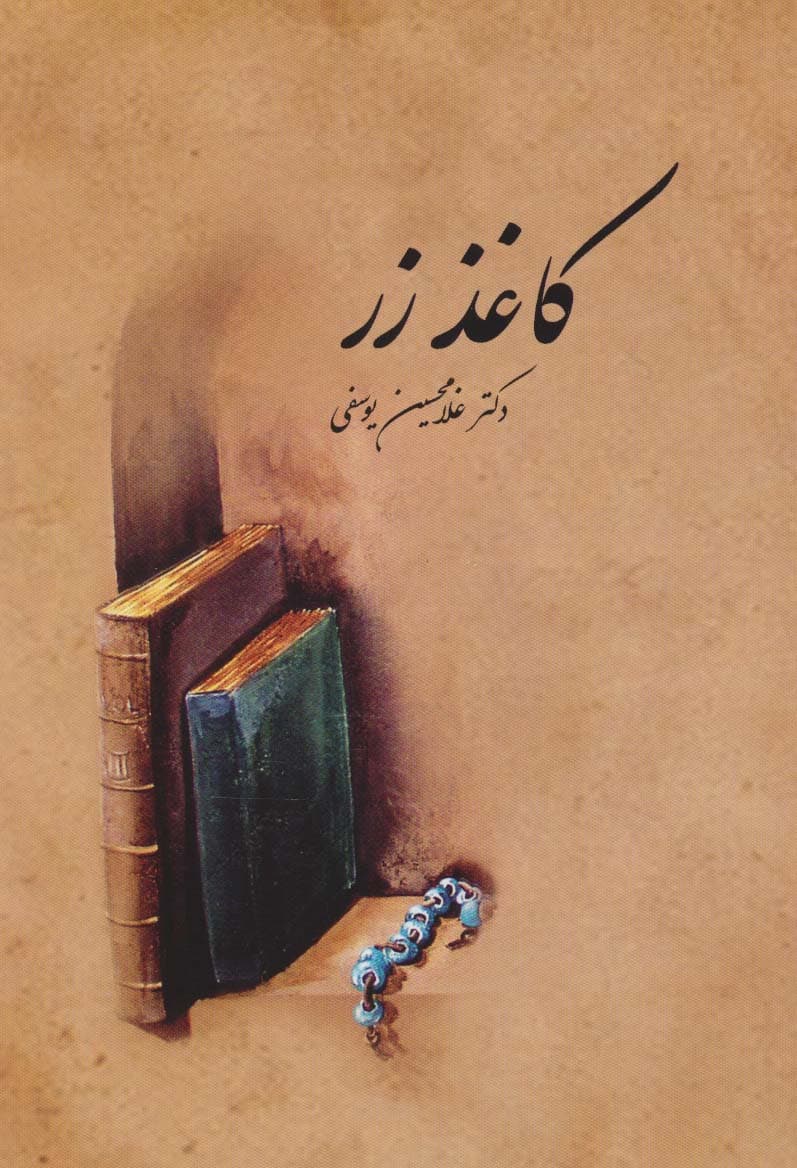 کاغذ زر
دکتر غلامحسین یوسفی